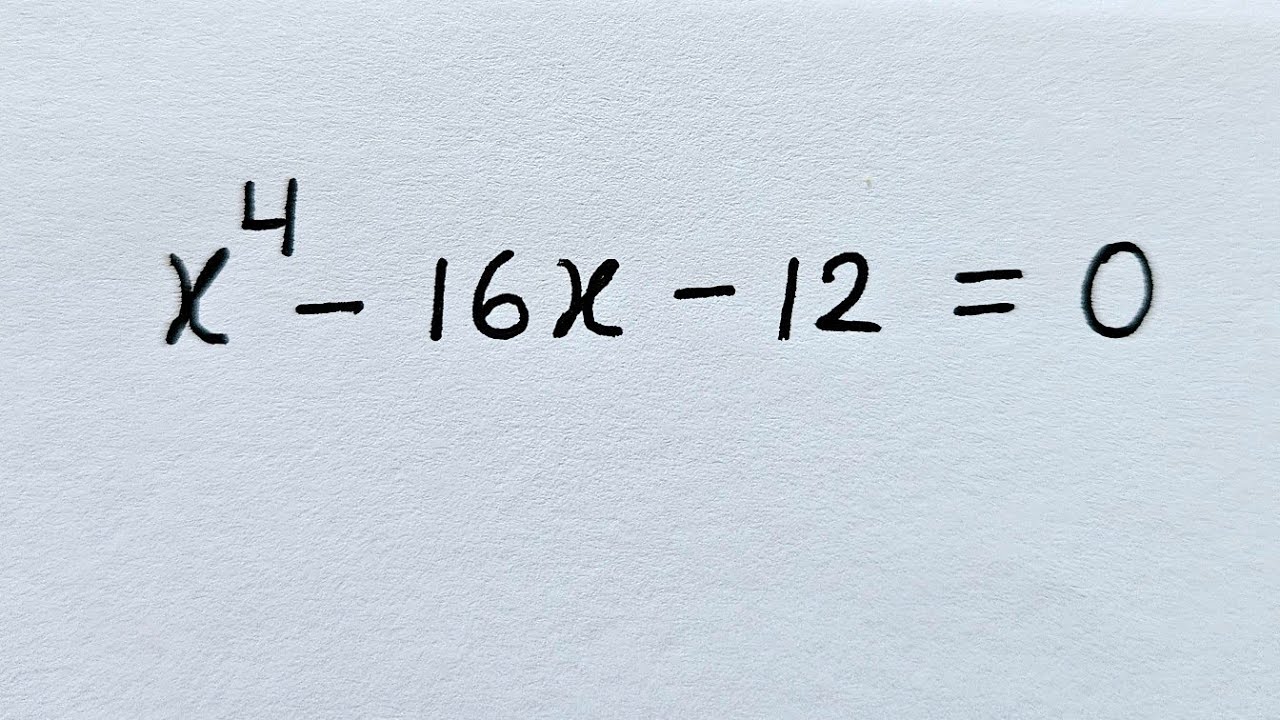 x⁴ - 16x - 12 = 0